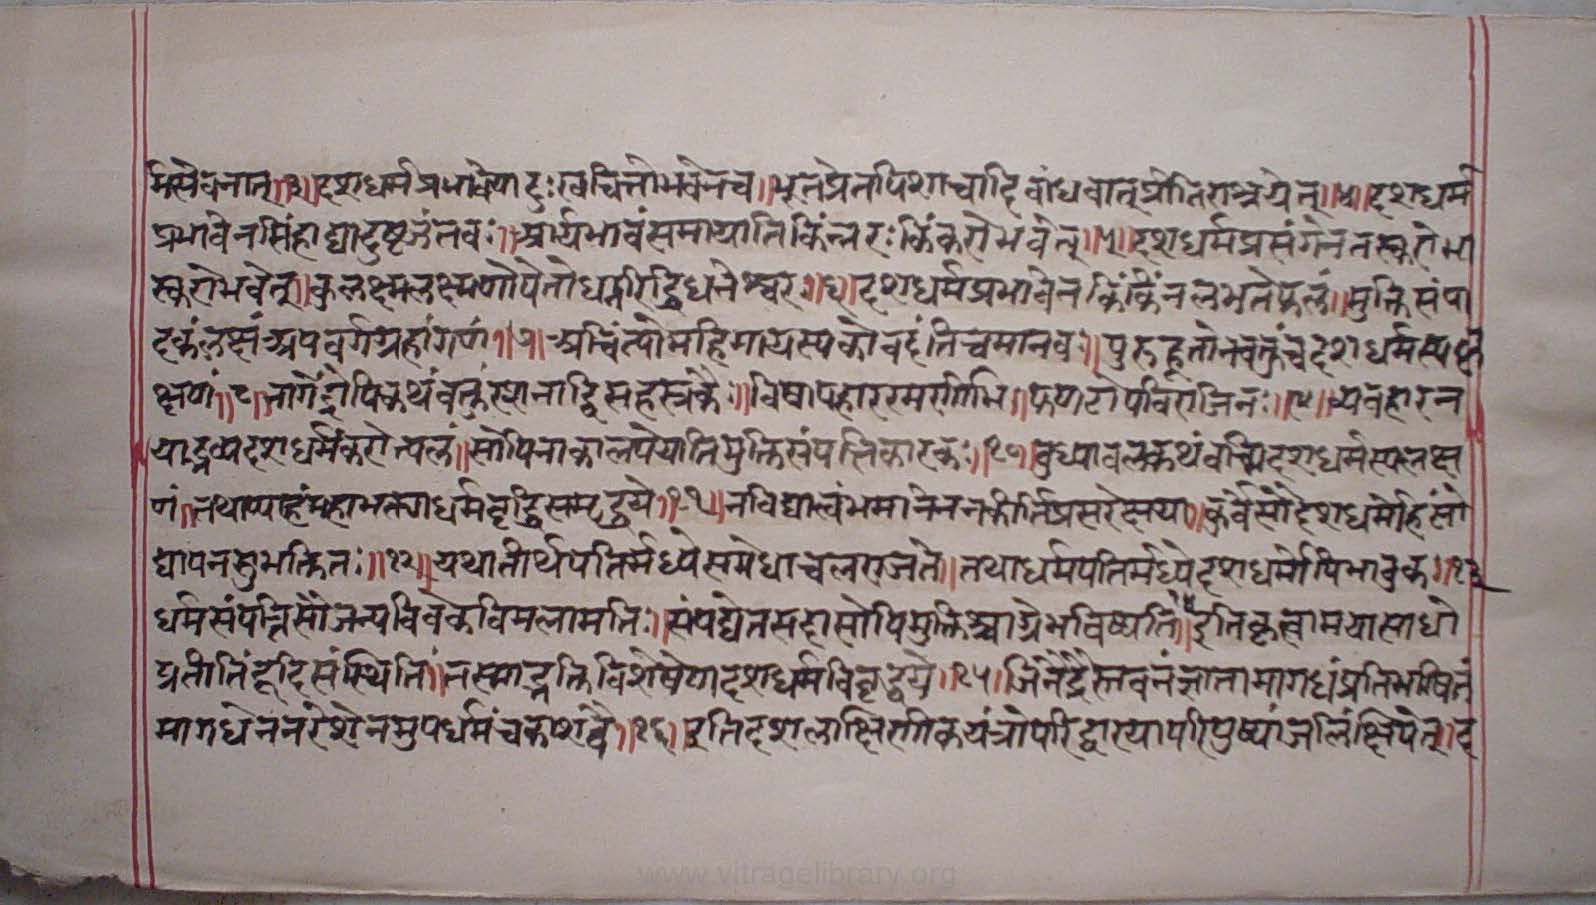 र्मसेवनात्॥३॥दशधर्मप्रभावेयादुःखचित्तोभवेनच॥भूतप्रेतपिशाचादिबांधवात्प्रीतिराश्रयेत्॥४॥दशधर्म
प्रभावेनसिंहाद्यादुष्टजंतवः॥आर्यभावंसमायातिकिंनरःकिंकरोभवेत्॥५॥दशधर्मप्रसंगेनतस्करोभा
स्करोभवेत्॥कुलक्ष्मलक्ष्मणोपेतोधर्मारिद्धिधनेश्वर॥६॥दशधर्मप्रभावेनकिंकिंनलभतेफलं॥मुक्तिसंपा
दकंलक्ष्मंअपवर्गग्रहांगणं॥७॥अचिंत्योमहिमायस्यकोवदंतिचमानवः॥पुरुहूतोनवक्तुंचदशधर्मस्यल
क्ष्णणं॥८॥नागेंद्रोपिकथंवक्तुंख्यानाद्विसहस्रकैः॥विषापहाररमरागिभि॥फणाटोपविराजितः॥९॥व्यवहारन
याद्भव्यदशधर्मंकरोत्यलं॥सोपिनाकालयेयातिमुक्तिसंपत्तिकारकः॥१०॥बुध्याबलकथंवच्मिदशधर्मस्यलक्ष
णं॥तथाप्याहंमहाभक्त्याधर्मवृद्धिसमृद्धये॥११॥नविद्यात्वंभमानेननकीर्तिप्रसरेक्षया॥कुर्वेसौदशधर्मोहिसो
द्यापनसुभक्तितः॥१२॥यथातीर्थपतिर्मध्येसमेधाचलराजते॥तथाधर्मपतिर्मध्येदशधर्मोपिभावुक॥१३
धर्मसंपत्तिसौजन्यविवेकविमलामतिः॥संपद्येतसहासोपिमुक्तिश्चाग्रेभविष्यति॥१४॥इतिकृत्वामयासाधो
प्रतीतिंहृदिसंस्थितिं॥तस्माद्भक्तिविशेषेणदशधर्मविवृद्धये॥१५॥जिनेंद्रैस्तवनंज्ञातामागधंप्रतिभाषितं
मागधेननरेशेनमुपधर्मंचकाशवै॥१६॥इतिदशलाक्षिणीकयंत्रोपरिद्वारयापरिपुष्पांजलिंक्षिपेत्॥द
www.vitragelibrary.org